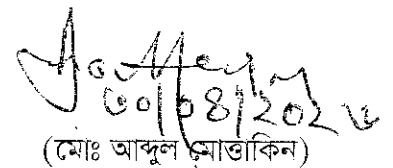 ৩০/০৪/২০২৬
(মোঃ আব্দুল মোত্তাকিন)